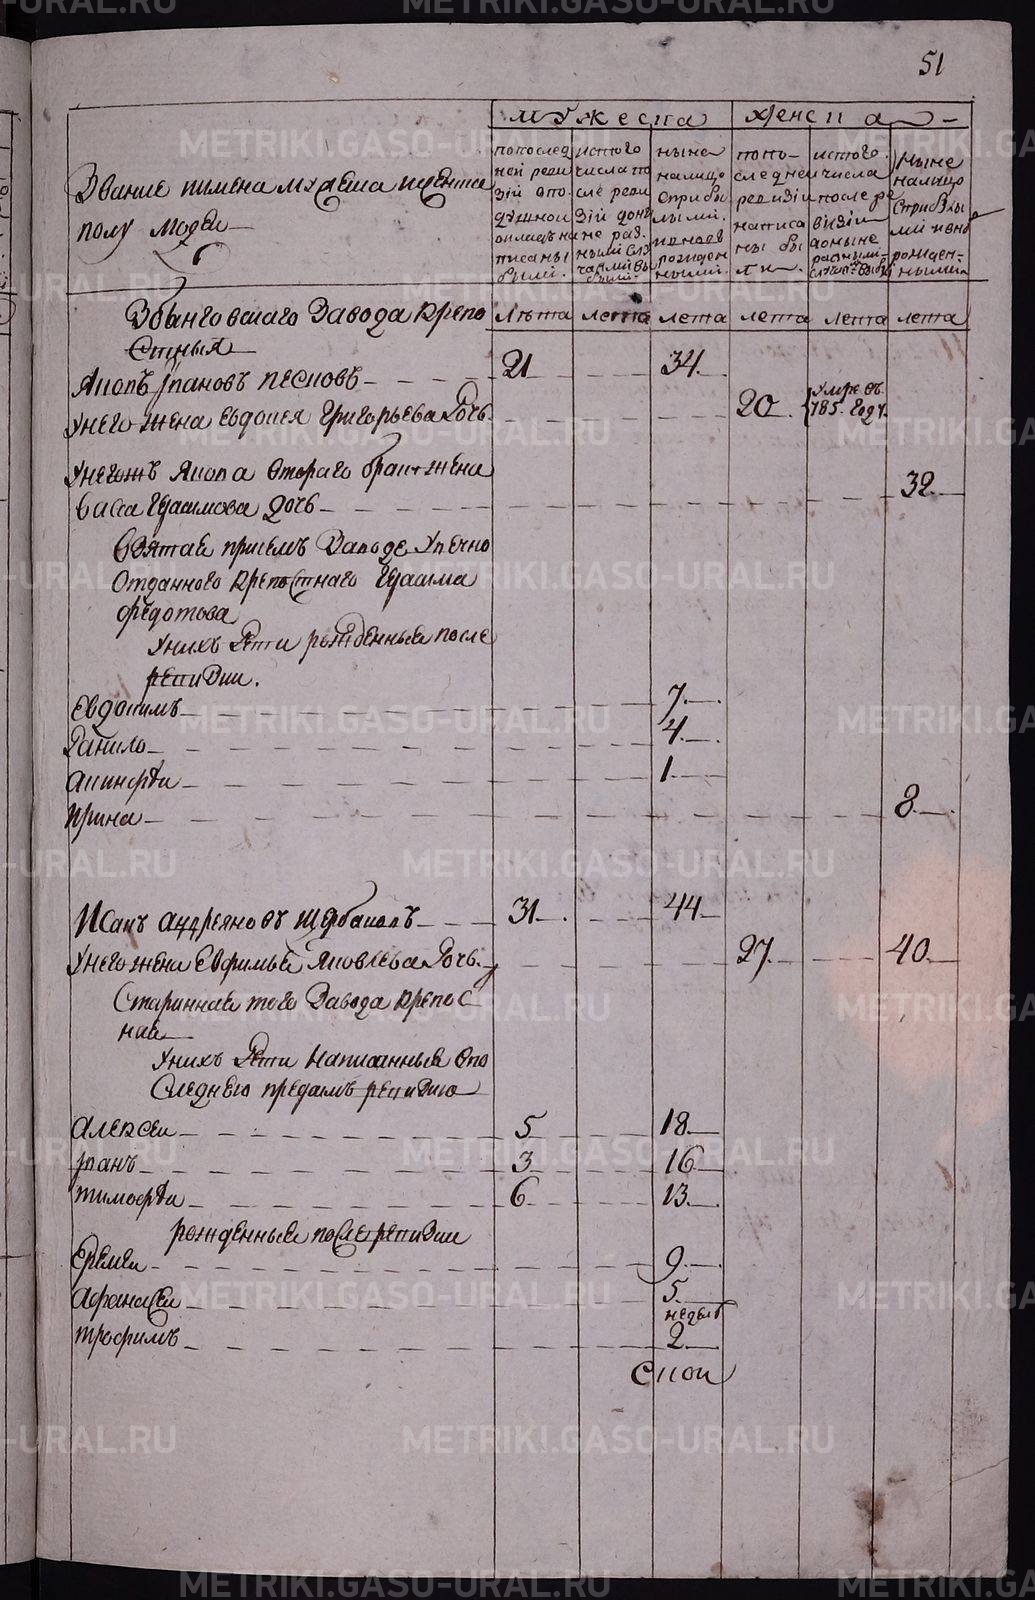 51
мужеска
женска
Звание имена мужеска и женска
полу людей
по последней ревизии в подушной оклад написаны были.
из того числа после ревизии до ныне разными случаями выбыли.
ныне на лицо с прибылыми и вновь рожденными.
по последней ревизии написаны были
из того числа после ревизии до ныне разными случаями выбы
ныне на лицо с прибылыми и вновь рожденными
лета лета лета лета лета лета
завода крепо
стныя
Яковъ Ивановъ Песковъ 21 34.
У него жена Евдокея Григорьева дочь. 20. умре въ
785. году.
У негожъ Якова второго брак жена
Васса Герасимова дочь 32.
Взятая при семъ заводе у вечно
отданного крепостнаго Герасима
Федотова
У нихъ дети рожденные после
ревизии.
Евдокимъ 7.
Данило 4.
Акинфеи 1
Ирина 8.
Исакъ Андреяновъ Щербаковъ 31. 44
У него жена Евфимья Яковлева дочь. 27. 40.
Старинная того завода крепос
ная
У нихъ дети написанные в по
следнею пред симъ ревизию
Алексеи 5 18.
Иванъ 3 16
Тимофеи 6 13.
рожденные после ревизии
Еремеи 9.
Афанасеи 5.
недель
Трофимъ 2.
Скои
METRIKI.GASO-URAL.RU